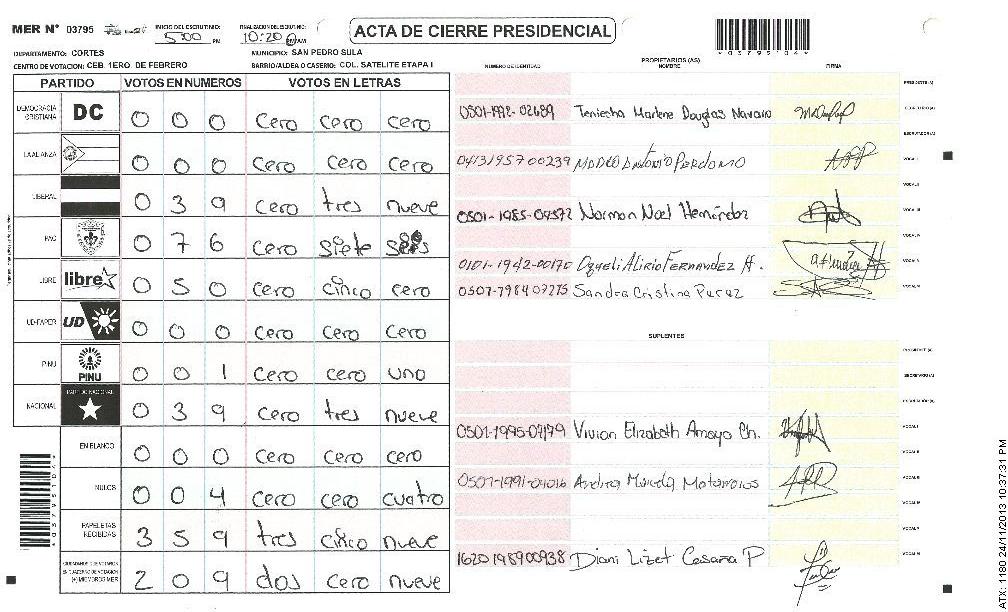 MER N° 03795 INICIO DEL ESCRUTINIO: 5:00 PM FINALIZACION DEL ESCRUTINIO: 10:20 PM/AM ACTA DE CIERRE PRESIDENCIAL *03795104*
DEPARTAMENTO: CORTES MUNICIPIO: SAN PEDRO SULA
CENTRO DE VOTACION: CEB. 1ERO. DE FEBRERO BARRIO/ALDEA O CASERIO: COL. SATELITE ETAPA I
NUMERO DE IDENTIDAD PROPIETARIOS (AS) NOMBRE FIRMA
PARTIDO VOTOS EN NUMEROS VOTOS EN LETRAS
DEMOCRACIA CRISTIANA DC 0 0 0 cero cero cero
LA ALIANZA 0 0 0 cero cero cero
LIBERAL 0 3 9 cero tres nueve
PAC 0 7 6 cero siete seis
LIBRE libre 0 5 0 cero cinco cero
UD-FAPER UD 0 0 0 cero cero cero
PINU PINU 0 0 1 cero cero uno
NACIONAL PARTIDO NACIONAL 0 3 9 cero tres nueve
EN BLANCO 0 0 0 cero cero cero
NULOS 0 0 4 cero cero cuatro
PAPELETAS RECIBIDAS 3 5 9 tres cinco nueve
CIUDADANOS QUE VOTARON EN CUADERNO DE VOTACION (+) MIEMBROS MER 2 0 9 dos cero nueve
*03795104*
PRESIDENTE (A)
0501-1992-02689 Teniecha Marlene Douglas Navaro SECRETARIO (A)
ESCRUTADOR (A)
0413195700239 MARCO ANTONIO PERDOMO VOCAL I
VOCAL II
0501-1985-04572 Norman Noel Hernández VOCAL III
VOCAL IV
0101-1942-00170 Alirio FERNANDEZ H. VOCAL V
Sandra Cristina VOCAL VI
SUPLENTES
PRESIDENTE (A)
SECRETARIO (A)
ESCRUTADOR (A)
0501-1995-04179 Vivian Elizabeth Amaya Ch. VOCAL I
VOCAL II
0501-1991-04016 Andrea Matamoros VOCAL III
VOCAL IV
VOCAL V
1620198900938 Diani Lizet P VOCAL VI
ATX: 1180 24/11/2013 10:37:31 PM